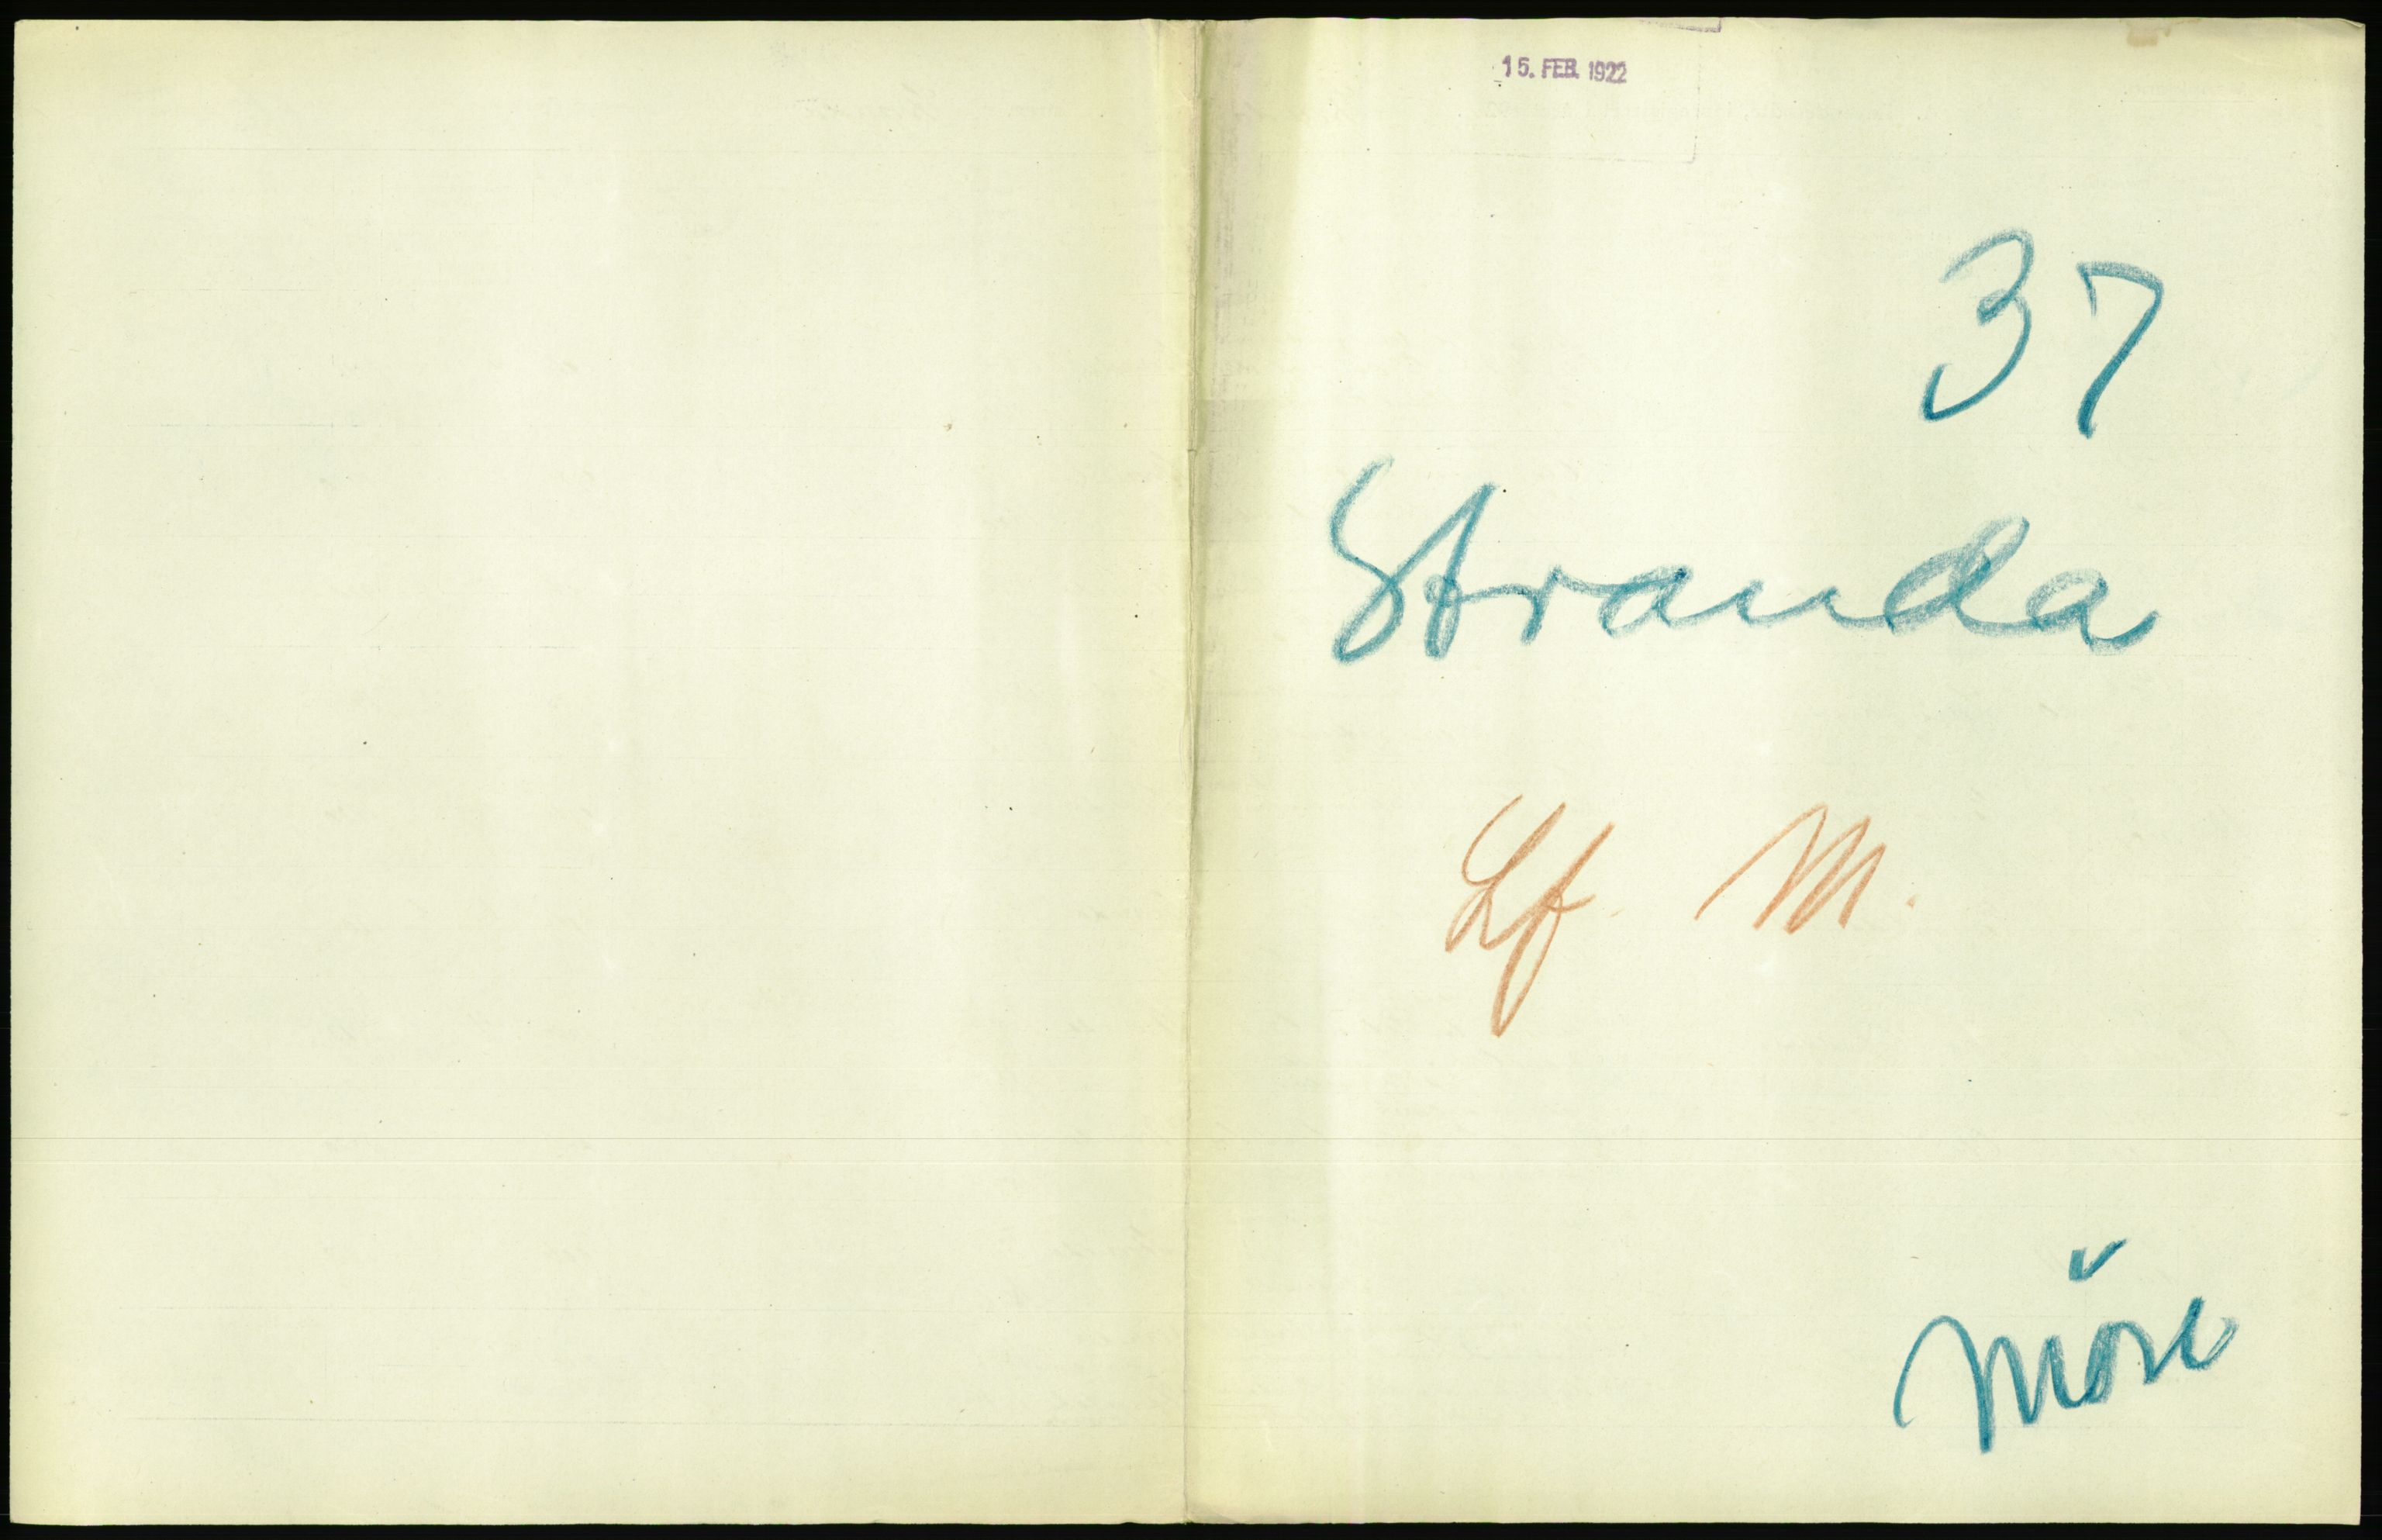 15. FEB. 1922
37
Stranda
Lf. M.
Möre